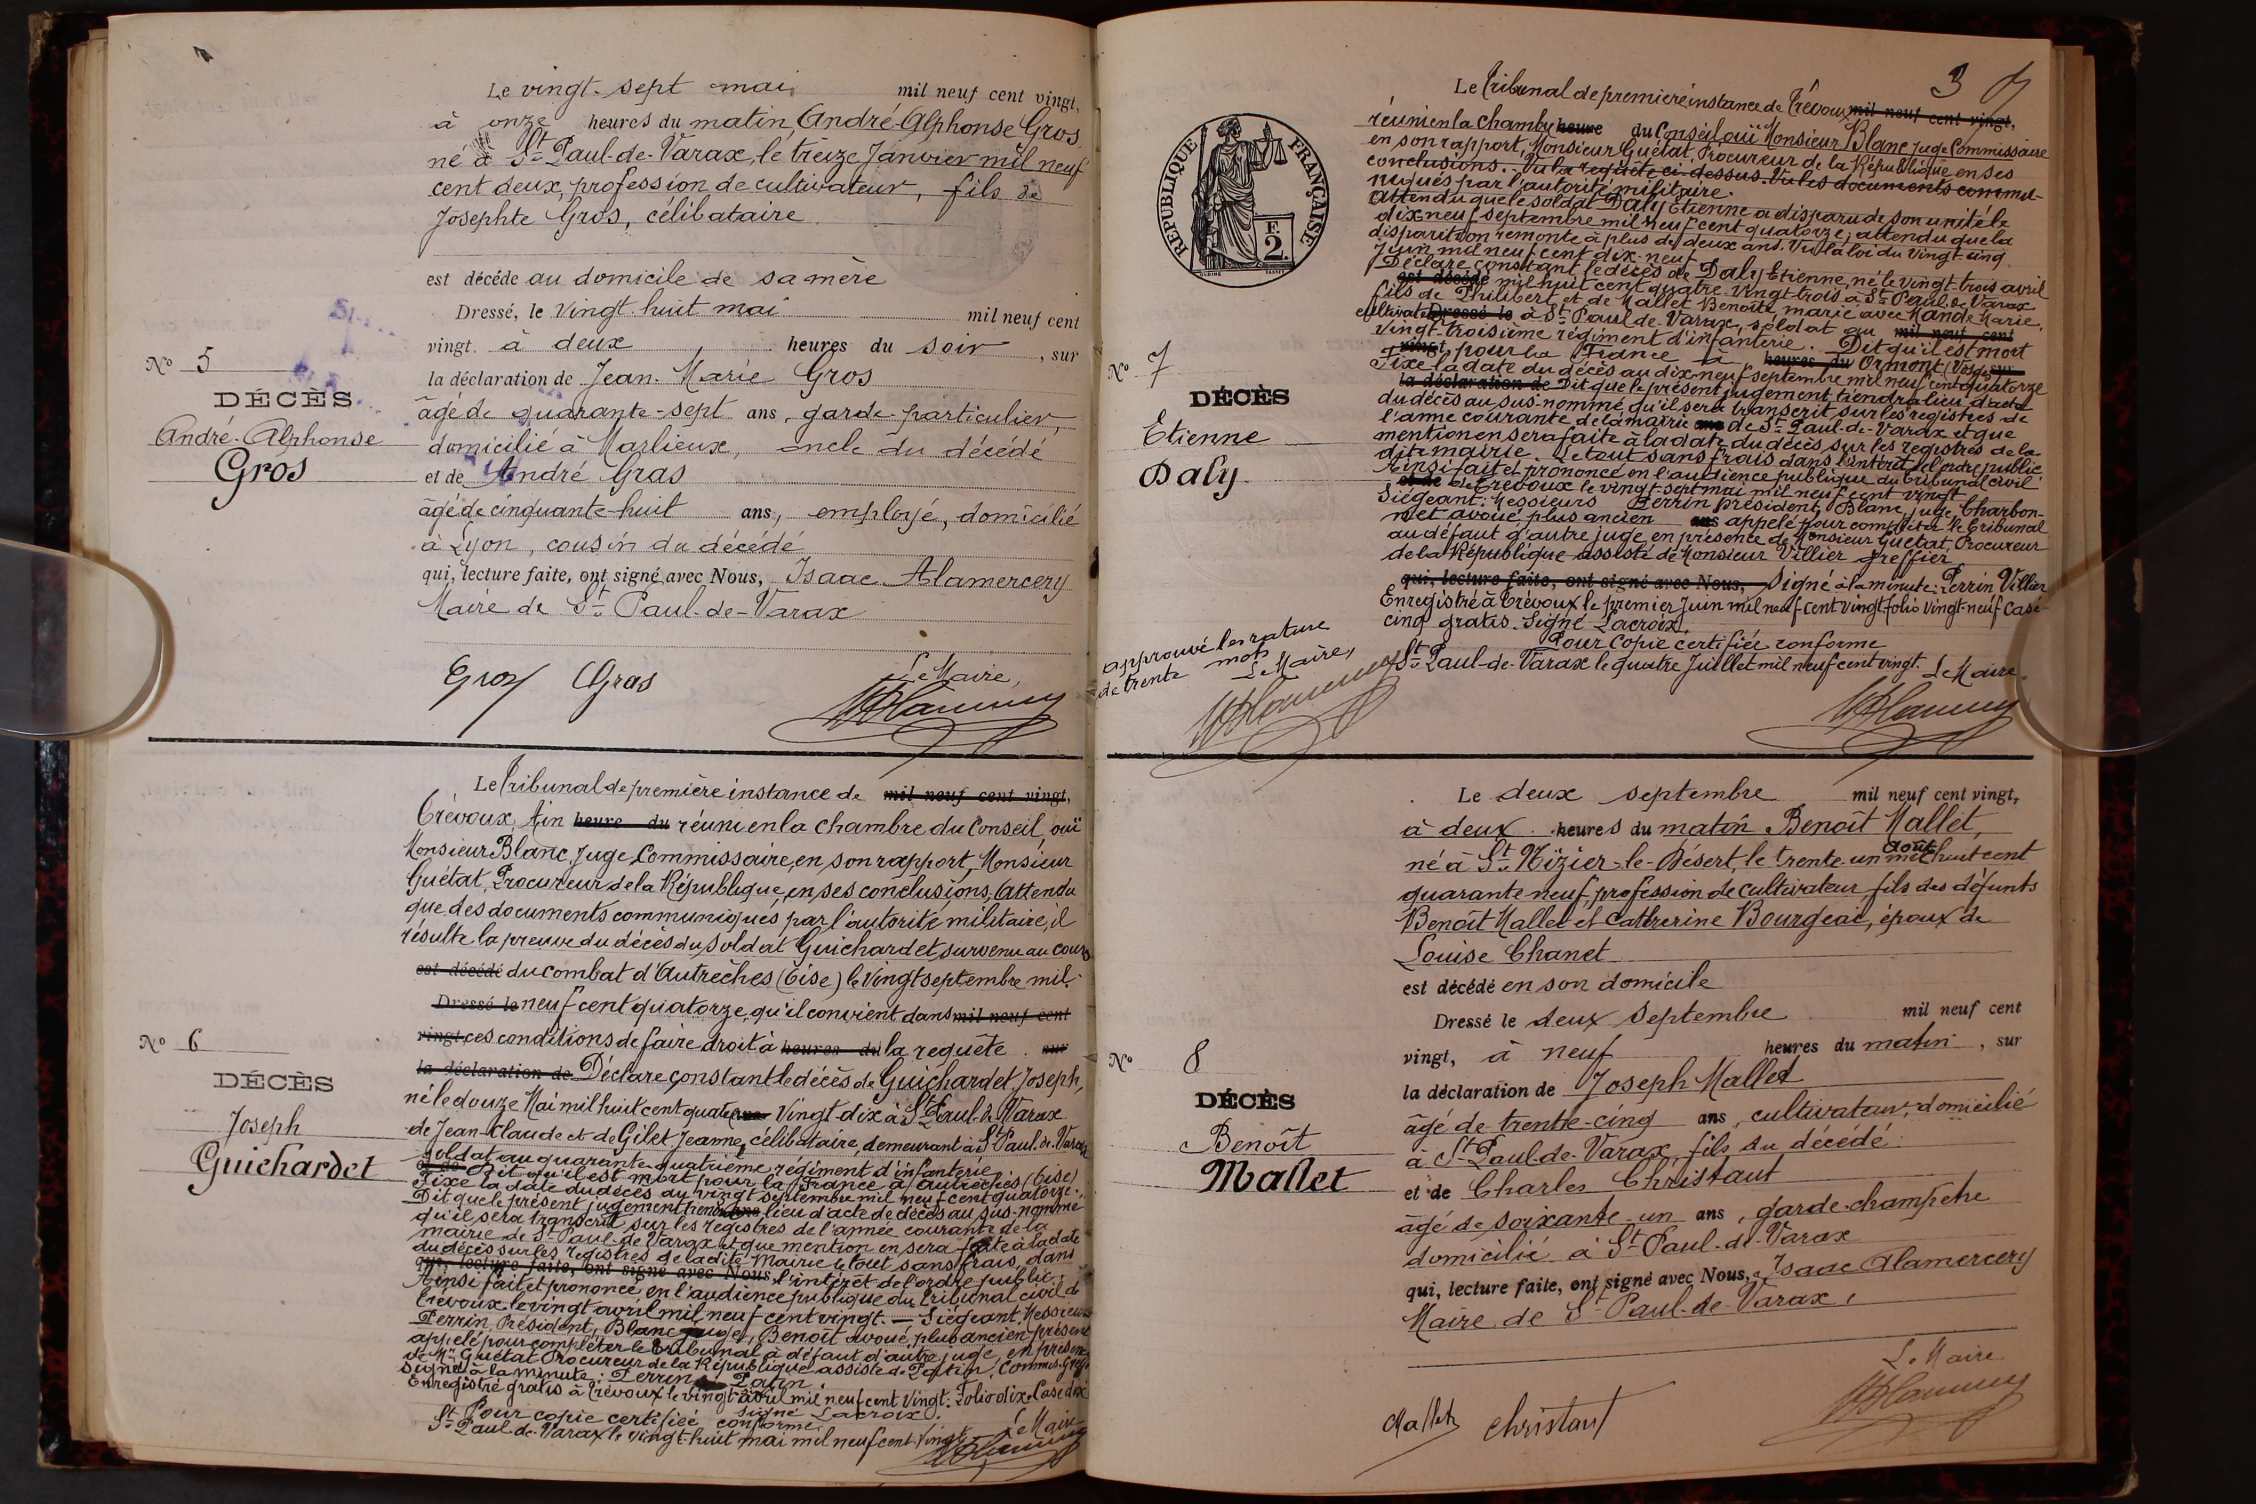 Le vingt-sept mai mil neuf cent vingt,
à onze heures du matin André-Alphonse Gros
né à St Paul-de-Varax, le treize Janvier mil neuf
cent deux, profession de cultivateur, fils de
Josephte Gros, célibataire
est décédé au domicile de sa mère
Dressé, le vingt-huit mai mil neuf cent
vingt à deux heures du soir, sur
la déclaration de Jean-Marie Gros
âgé de quarante-sept ans, garde-particulier,
domicilié à Marlieux, oncle du décédé
et de André Gras
âgé de cinquante-huit ans, employé, domicilié
à Lyon, cousin du décédé
qui, lecture faite, ont signé avec Nous, Isaac Alamercery
Maire de St Paul-de-Varax
Nº 5
DÉCÈS
André-Alphonse
Gros
Le Maire,
Gros Gras
Le Tribunal de première instance de mil neuf cent vingt,
Trévoux, Ain heure du réuni en la chambre du Conseil, ouï
Monsieur Blanc, Juge Commissaire, en son rapport, Monsieur
Guétat, Procureur de la République, en ses conclusions, Attendu
que des documents communiqués par l'autorité militaire, il
résulte la preuve du décès du soldat Guichardet, survenu au cours
est décédé du combat d'Autrèches (Oise) le vingt septembre mil
Dressé le neuf cent quatorze, qu'il convient dans mil neuf cent
vingt, ces conditions de faire droit à heures du la requête. sur
la déclaration de Déclare constant le décès de Guichardet Joseph,
né le douze Mai mil huit cent quatre ans Vingt-dix à St Paul-de-Varax
de Jean-Claude et de Gilet Jeanne, célibataire, demeurant à St Paul-de-Varax
soldat au quarante-quatrième régiment d'infanterie
et de Dit qu'il est mort pour la France à Autrèches (Oise)
Fixe la date du décès au vingt septembre mil neuf cent quatorze.
Dit que le présent jugement tiendra ans lieu d'acte de décès au sus-nommé
qu'il sera transcrit sur les registres de l'année courante de la
mairie de St Paul-de-Varax et que mention en sera faite à la date
du décès sur les registres de la dite Mairie le tout sans frais, dans
qui, lecture faite, ont signé avec Nous l'intérêt de l'ordre public.
Ainsi fait et prononcé en l'audience publique du tribunal civil de
Trévoux le vingt avril mil neuf cent vingt. — Siégeant, Messieurs
Perrin, Président, Blanc juge, Benoît avoué, plus ancien présent
appelé pour compléter le tribunal à défaut d'autre juge, en présence
de Mr Guétat Procureur de la République assisté de Potin, Commis-Greff.
Signé à la minute: Perrin Potin
Enregistré gratis à Trévoux le vingt avril mil neuf cent vingt. Folio dix, Case dix
signé Lacroix.
Pour copie certifiée conforme
St Paul-de-Varax le vingt-huit mai mil neuf cent vingt Le Maire
Nº 6
DÉCÈS
Joseph
Guichardet
3
Le Tribunal de première instance de Trévoux mil neuf cent vingt,
réuni en la chambre heure du Conseil, ouï Monsieur Blanc Juge Commissaire
en son rapport, Monsieur Guétat, Procureur de la République en ses
conclusions. Vu la requête ci-dessus. Vu les documents commu-
niqués par l'autorité militaire.
Attendu que le soldat Daly Etienne a disparu de son unité le
dix-neuf septembre mil neuf cent quatorze; attendu que la
disparition remonte à plus de deux ans. Vu la loi du vingt-cinq
Juin mil neuf cent dix-neuf
Déclare constant le décès de Daly Etienne, né le vingt-trois avril
est décédé mil huit cent quatre-vingt-trois à St Paul-de-Varax
fils de Philibert et de Mallet Benoîte, marié avec Mande Marie,
cultivateur Dressé le à St Paul-de-Varax, soldat au mil neuf cent
vingt-troisième régiment d'infanterie. Dit qu'il est mort
vingt, pour la France à heures du Ormont (Vosges) sur
Fixe la date du décès au dix-neuf septembre mil neuf cent quatorze
la déclaration de Dit que le présent jugement tiendra lieu d'acte
du décès au sus-nommé, qu'il sera transcrit sur les registres de
l'année courante de la mairie ans de St Paul-de-Varax et que
mention en sera faite à la date du décès sur les registres de la
dite mairie. Le tout sans frais dans l'intérêt de l'ordre public
Ainsi fait et prononcé en l'audience publique du tribunal civil
et de de Trévoux le vingt-sept mai mil neuf cent vingt
Siégeant: Messieurs Perrin président, Blanc, juge, Charbon-
net avoué plus ancien ans appelé pour compléter le Tribunal
au défaut d'autre juge en présence de Monsieur Guétat, Procureur
de la République assisté de Monsieur Villier greffier
qui, lecture faite, ont signé avec Nous, Signé à la minute: Perrin Villier
Enregistré à Trévoux le premier Juin mil neuf cent vingt folio vingt-neuf Case
cinq gratis. Signé Lacroix.
Pour Copie certifiée conforme
St Paul-de-Varax le quatre Juillet mil neuf cent vingt. Le Maire.
RÉPUBLIQUE FRANÇAISE
F.
2.
Nº 7
DÉCÈS
Etienne
Daly
approuvé les rature
de trente mots
Le Maire,
Le deux septembre mil neuf cent vingt,
à deux heures du matin Benoît Mallet,
août
né à St Nizier-le-Désert, le trente-un mil huit cent
quarante-neuf, profession de cultivateur fils des défunts
Benoît Mallet et Catherine Bourgeai, époux de
Louise Chanet
est décédé en son domicile
Dressé le deux septembre mil neuf cent
vingt, à neuf heures du matin, sur
la déclaration de Joseph Mallet
âgé de trente-cinq ans, cultivateur, domicilié
à St Paul-de-Varax, fils du décédé
et de Charles Christaut
âgé de soixante-un ans, garde-champêtre
domicilié à St Paul-de-Varax
qui, lecture faite, ont signé avec Nous, Isaac Alamercery
Maire de St Paul-de-Varax,
Nº 8
DÉCÈS
Benoît
Mallet
Le Maire
Mallet Christaut